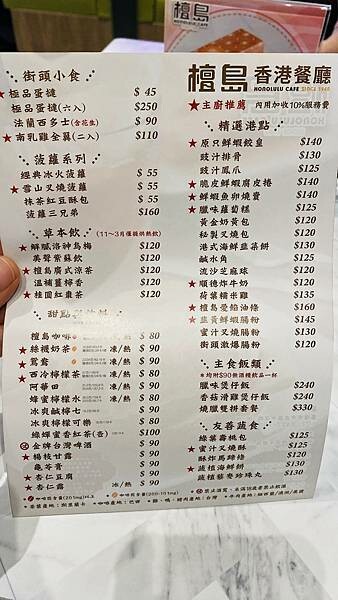 檀島
HONOLULU CAFE
檀島 香港餐廳
HONOLULU CAFE SINCE 1940
★主廚推薦 內用加收10%服務費
街頭小食
★極品蛋撻 $ 45
極品蛋撻(六入) $250
法蘭西多士(含花生) $ 90
★南乳雞金翼(二入) $110
菠蘿系列
經典冰火菠蘿 $ 55
★雪山叉燒菠蘿 $ 55
抹茶紅豆酥包 $ 55
菠蘿三兄弟 $160
草本飲 (11~3月僅提供熱飲)
★解膩洛神烏梅 $120
美聲紫蘇飲 $120
★檀島廣式涼茶 $120
溫補薑檸香 $120
★桂圓紅棗茶 $120
甜點
檀島咖啡 凍/熱 $ 80
★絲襪奶茶 凍/熱 $ 80
★鴛鴦 凍/熱 $ 90
★西冷檸檬茶 凍/熱 $ 80
阿華田 凍/熱 $ 90
蜂蜜檸檬水 凍/熱 $ 80
冰爽鹹檸七 $ 90
冰爽檸檬可樂 $ 80
蜂蜜香紅茶(壺) $100
金牌台灣啤酒 $ 90
★楊枝甘露 $ 90
龜苓膏 $ 90
★杏仁豆腐 $ 90
★杏仁露 凍/熱 $ 90
精選港點
★原只鮮蝦餃皇 $140
豉汁排骨 $130
豉汁鳳爪 $125
★脆皮鮮蝦腐皮捲 $140
★鮮蝦魚卵燒賣 $140
★臘味蘿蔔糕 $125
黃金奶黃包 $120
秘製叉燒包 $120
港式海鮮韭菜餅 $130
鹹水角 $125
流沙芝麻球 $120
★順德炸牛奶 $120
荷葉糯米雞 $135
★檀島愛餡油條 $160
★韭黃鮮蝦腸粉 $145
蜜汁叉燒腸粉 $130
街頭激爆腸粉 $120
主食飯類
★均附$90無酒精飲品一杯
臘味煲仔飯 $240
香菇滑雞煲仔飯 $240
燒臘雙拼套餐 $330
友善蔬食
綠葉壽桃包 $125
★蜜汁叉燒酥 $125
酥炸馬蹄條 $120
★蔬植海鮮餅 $130
★蔬植藜麥珍珠丸 $130